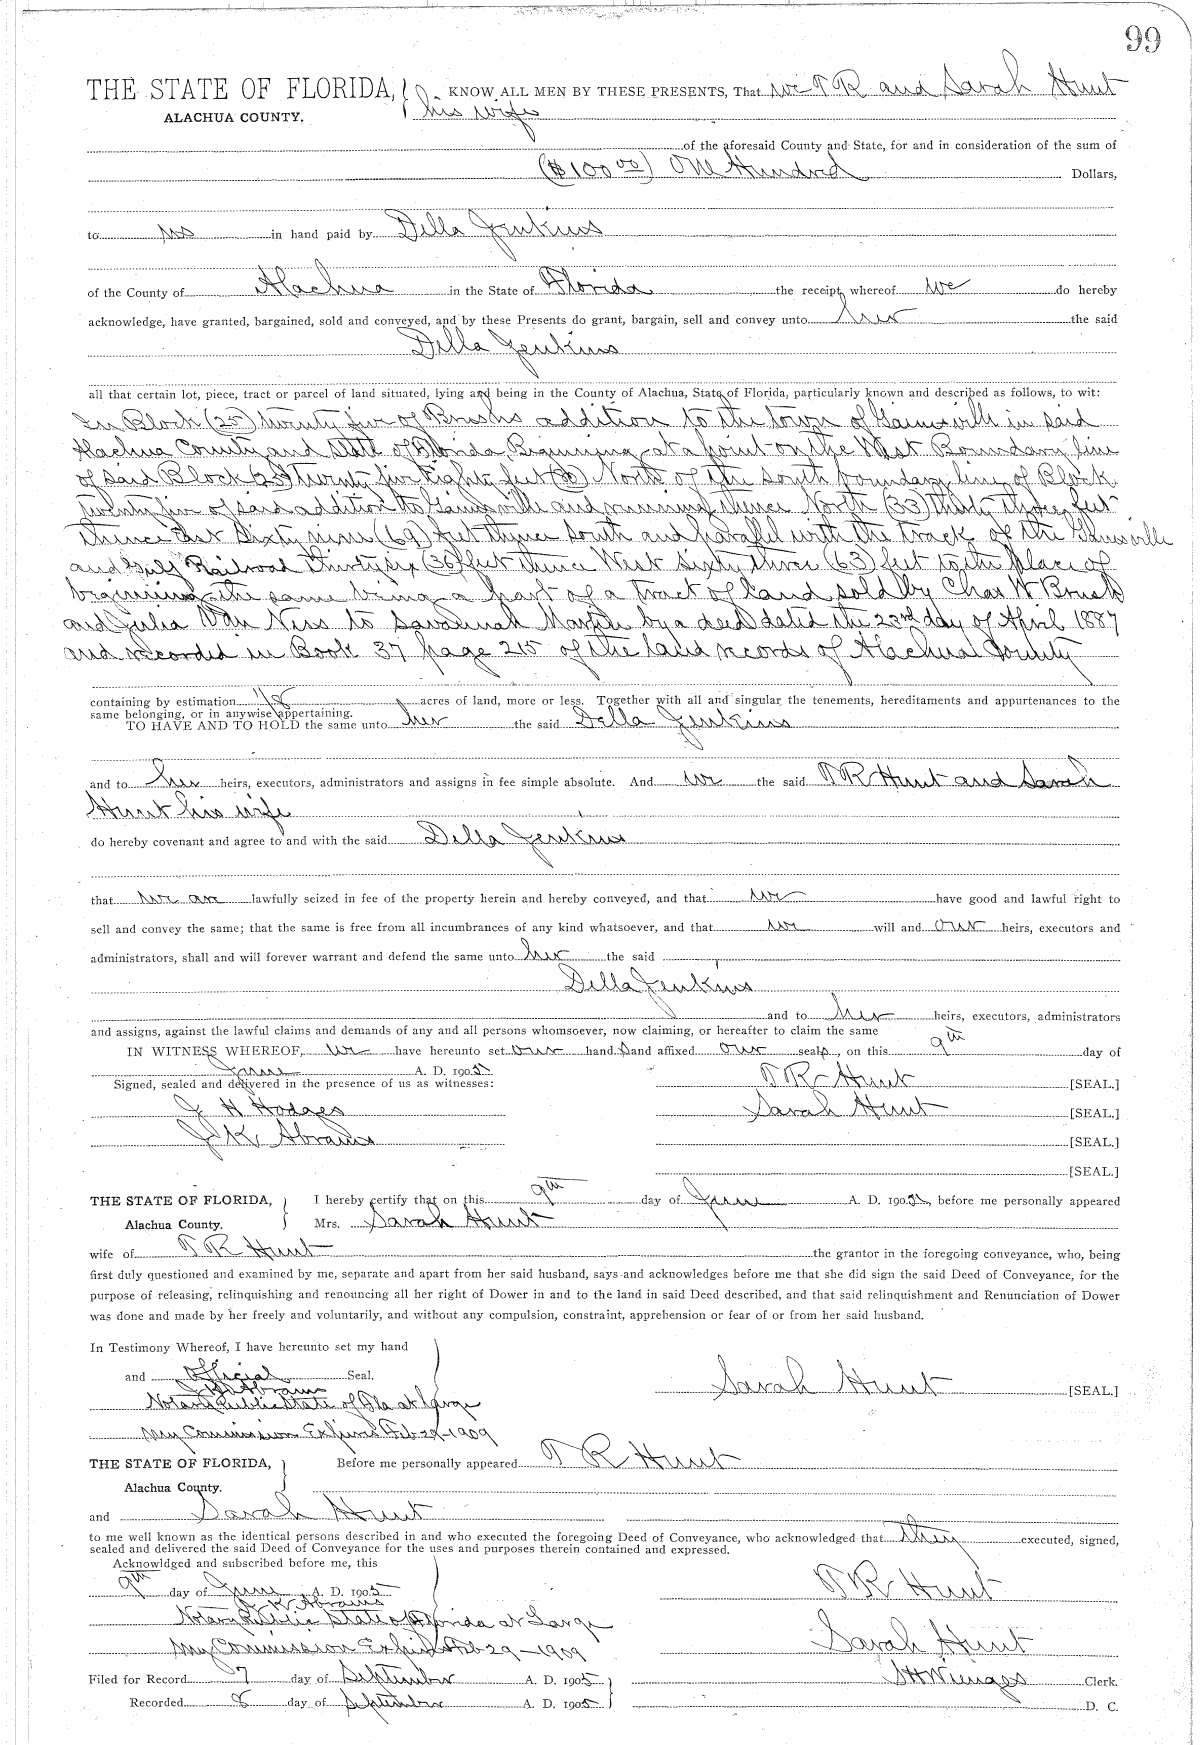 99
THE STATE OF FLORIDA, KNOW ALL MEN BY THESE PRESENTS, That we T R and Sarah Hunt
ALACHUA COUNTY. his wife
of the aforesaid County and State, for and in consideration of the sum of
($100 00) One Hundred Dollars,
to us in hand paid by Della Jenkins
of the County of Alachua in the State of Florida the receipt whereof we do hereby
acknowledge, have granted, bargained, sold and conveyed, and by these Presents do grant, bargain, sell and convey unto her the said
Della Jenkins
all that certain lot, piece, tract or parcel of land situated, lying and being in the County of Alachua, State of Florida, particularly known and described as follows, to wit:
In Block (25) twenty five of Brushs addition to the town of Gainesville in said
Alachua County and State of Florida, Beginning at a point on the West Boundary line
of said Block (25) Twenty five Eighty feet (80) North of the South boundary line of Block
twenty five of said addition to Gainesville and running thence North (33) thirty three feet
thence East Sixty nine (69) feet thence South and parallel with the track of the Gainesville
and Gulf Railroad Thirty six (36) feet thence West Sixty three (63) feet to the place of
beginning the same being a part of a tract of land sold by Chas W Brush
and Julia Van Ness to Savannah by a deed dated the 23rd day of April 1887
and recorded in Book 37 page 215 of the land records of Alachua County
containing by estimation 1/8 acres of land, more or less. Together with all and singular the tenements, hereditaments and appurtenances to the
same belonging, or in anywise appertaining.
TO HAVE AND TO HOLD the same unto her the said Della Jenkins
and to her heirs, executors, administrators and assigns in fee simple absolute. And we the said T R Hunt and Sarah
Hunt his wife
do hereby covenant and agree to and with the said Della Jenkins
that we are lawfully seized in fee of the property herein and hereby conveyed, and that we have good and lawful right to
sell and convey the same; that the same is free from all incumbrances of any kind whatsoever, and that we will and our heirs, executors and
administrators, shall and will forever warrant and defend the same unto her the said
Della Jenkins
and to her heirs, executors, administrators
and assigns, against the lawful claims and demands of any and all persons whomsoever, now claiming, or hereafter to claim the same
IN WITNESS WHEREOF, we have hereunto set our hand s and affixed our seals, on this 9th day of
June A. D. 1905
Signed, sealed and delivered in the presence of us as witnesses: T R Hunt [SEAL.]
J H Hodges Sarah Hunt [SEAL.]
J K Abrams [SEAL.]
[SEAL.]
THE STATE OF FLORIDA, I hereby certify that on this 9th day of June A. D. 1905, before me personally appeared
Alachua County. Mrs. Sarah Hunt
wife of T R Hunt the grantor in the foregoing conveyance, who, being
first duly questioned and examined by me, separate and apart from her said husband, says and acknowledges before me that she did sign the said Deed of Conveyance, for the
purpose of releasing, relinquishing and renouncing all her right of Dower in and to the land in said Deed described, and that said relinquishment and Renunciation of Dower
was done and made by her freely and voluntarily, and without any compulsion, constraint, apprehension or fear of or from her said husband.
In Testimony Whereof, I have hereunto set my hand
and Official Seal. Sarah Hunt [SEAL.]
J K Abrams
Notary Public State of Fla at Large
My Commission Expires Feb 29-1909
THE STATE OF FLORIDA, Before me personally appeared T R Hunt
Alachua County.
and Sarah Hunt
to me well known as the identical persons described in and who executed the foregoing Deed of Conveyance, who acknowledged that they executed, signed,
sealed and delivered the said Deed of Conveyance for the uses and purposes therein contained and expressed.
Acknowldged and subscribed before me, this
9th day of June A. D. 1905 T R Hunt
J K Abrams
Notary Public State of Florida at Large
My Commission Expires Feb 29-1909 Sarah Hunt
Filed for Record 7 day of September A. D. 1905 S H Wienges Clerk.
Recorded 8 day of September A. D. 1905 D. C.